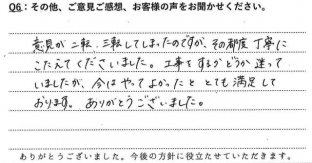 Q6：その他、ご意見ご感想、お客様の声をお聞かせください。
意見が二転、三転してしまったのですが、その都度丁寧に
こたえてくださいました。工事をするかどうか迷って
いましたが、今はやってよかったととても満足して
おります。ありがとうございました。
ありがとうございました。今後の方針に役立たせていただきます。